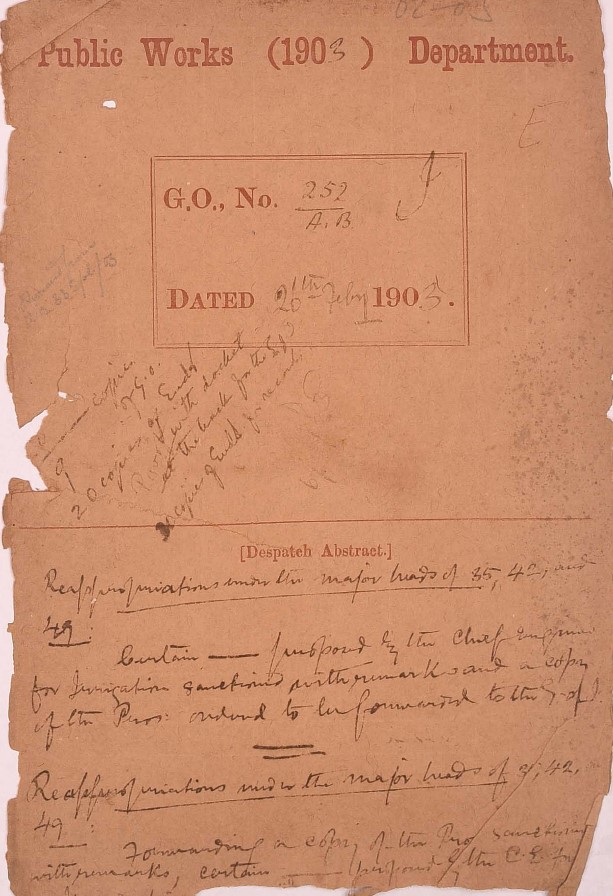 Public Works (1903) Department.
E
G.O., No. 252
A.B.
DATED 26th Feby 1903.
copies
of G.O.
20 copies of Endt
with docket
at the back for the
copies of Endt for record
[Despatch Abstract.]
Reappropriations under the major heads of 35, 42, and
49:
Certain — proposed by the Chief Engineer
for Irrigation sanctioned with remarks and a copy
of the Pros: ordered to be forwarded to the G. of I.
Reappropriations under the major heads of 35, 42,
49:
Forwarding a copy of the Pro. sanctioning
with remarks, certain — proposed by the C.E. for